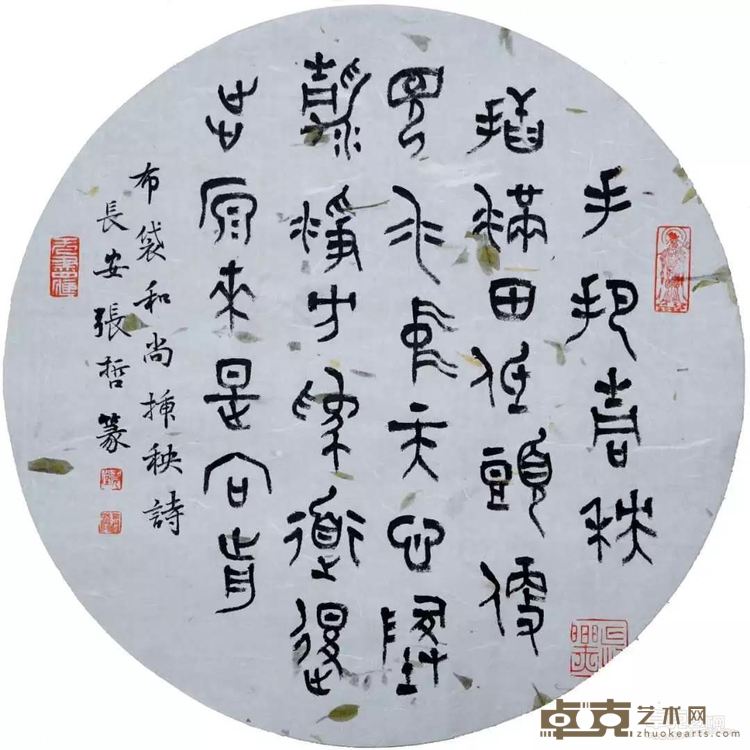 手把青秧
插滿田低頭便
見水中天心地
清淨方為道退
步原來是向前
布袋和尚插秧詩
長安張哲篆
卓克艺术网
zhuokearts.com